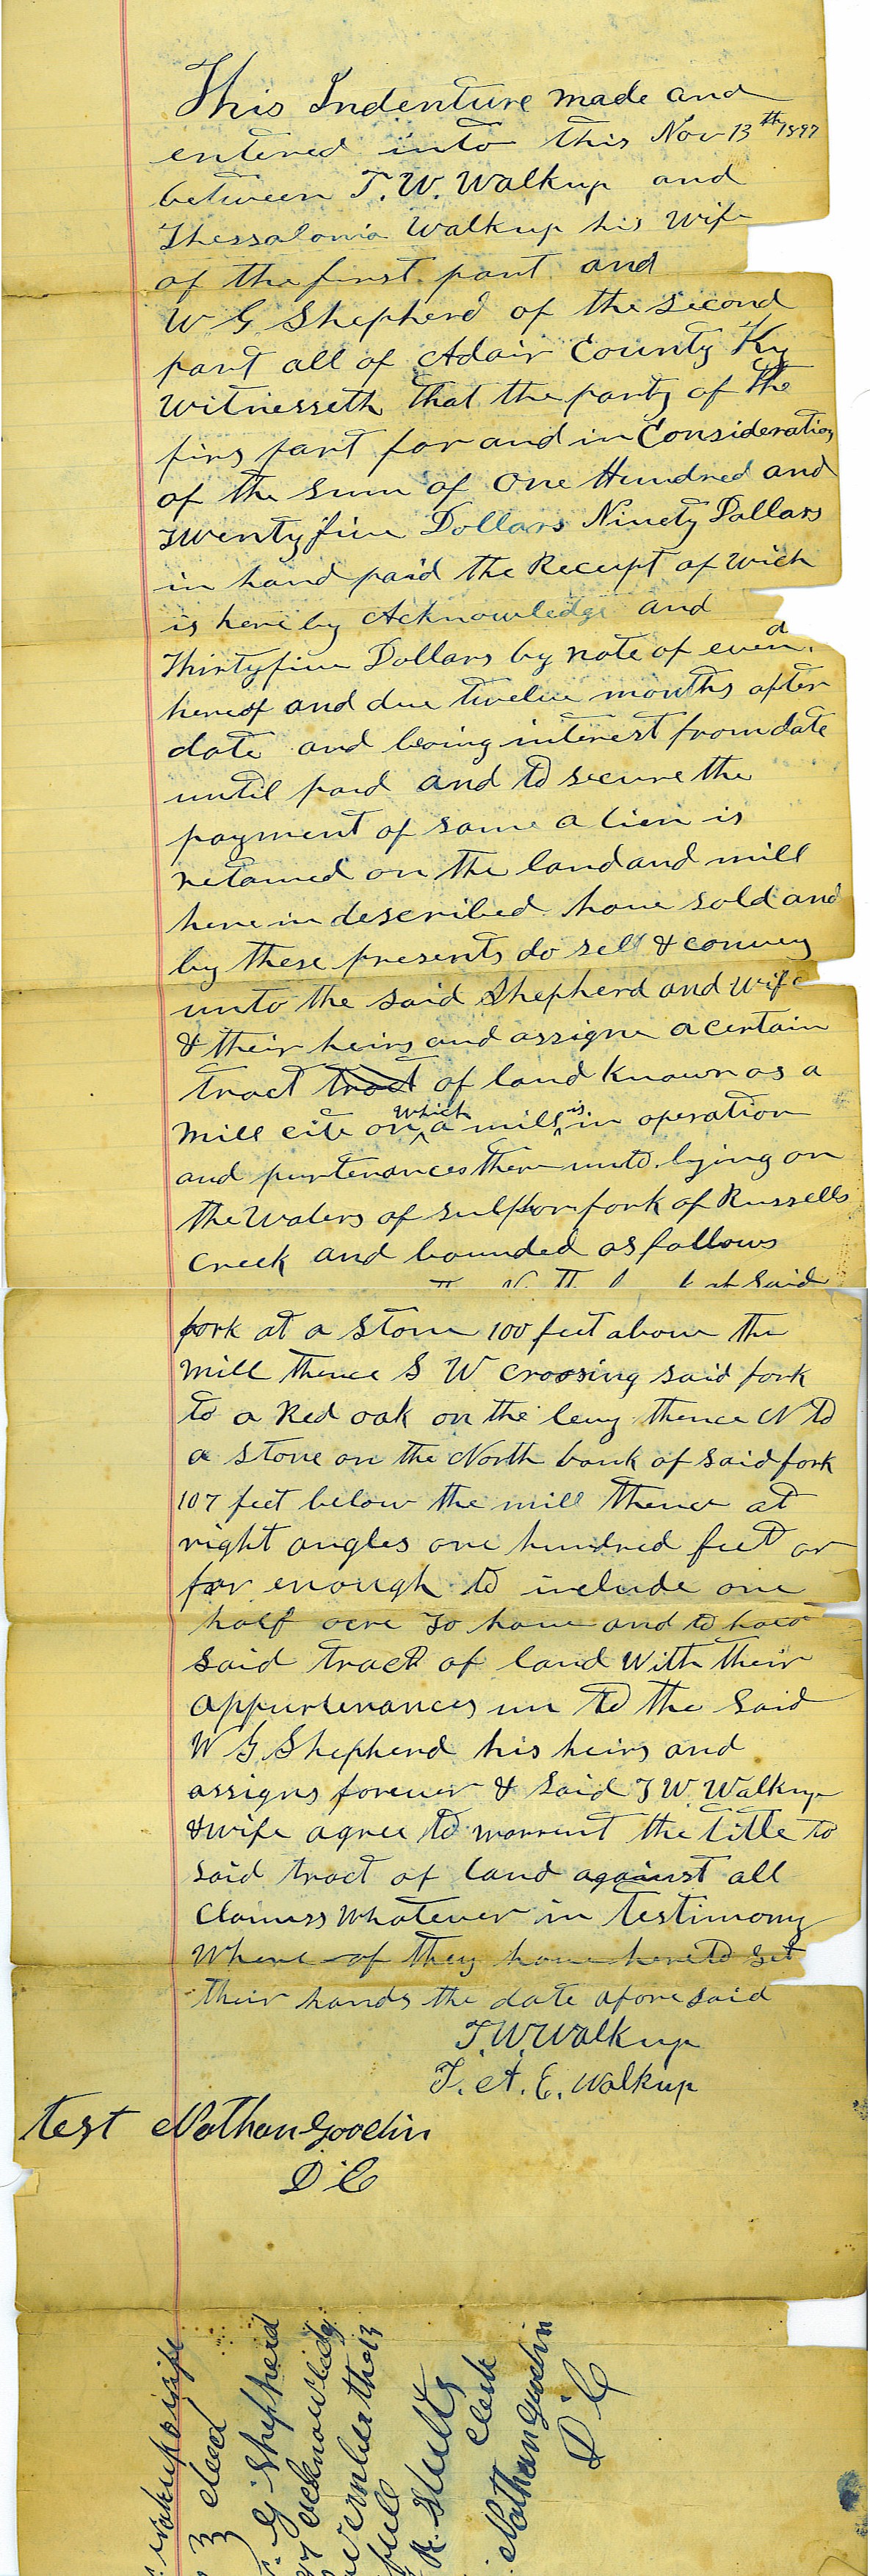 This Indenture made and
entered into this Nov 13th 1897
between T. W. Walkup and
Thessalonia Walkup his Wife
of the first part and
W G Shepherd of the second
part all of Adair County Ky
Witnesseth that the party of the
firs part for and in Consideration
of the sum of One Hundred and
Twenty five Dollars Ninety Dollars
in hand paid the Receipt of wich
is here by Acknowledge and
Thirty five Dollars by note of even d
hereof and due twelve months after
date and bearing interest from date
until paid and to secure the
payment of same a lien is
retained on the land and mill
here in described have sold and
by these presents do sell & convey
unto the said Shepherd and wife
& their heirs and assigns a certain
tract tract of land known as a
Mill cite on which a mill is in operation
and purtenances there unto lying on
the Waters of sulphor fork of Russells
Creek and bounded as follows
said
fork at a stone 100 feet above the
Mill thence S W crossing said fork
to a Red oak on the thence N to
a stone on the North bank of said fork
107 feet below the mill thence at
right angles one hundred feet or
far enough to include one
half acre To have and to hold
said tract of land With their
appurtenances un to the said
W G Shepherd his heirs and
assigns forever & said T W Walkup
& wife agree to warrent the title to
said tract of land against all
Claimss Whatever in testimony
Where of they have hereto set
their hands the date afore said
T. W. Walkup
T. A. E. Walkup
test Nathan Goodin
D C
Walkup wife
3 deed
G Shepherd
acknowledg
November the 13
full
R. Stults
Clerk
Nathan Goodin
D C